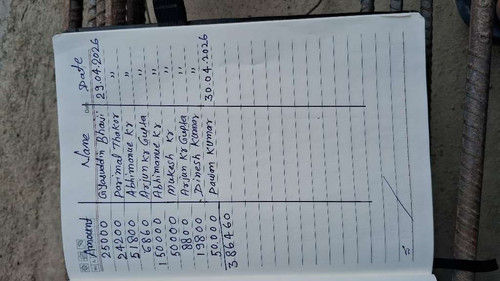 Amount Name Date
25000 Giyasuddin Bhai 29.04.2026
24200 Parimal Thakor "
51800 Abhimanue Kr "
6860 Arjun Kr Gupta "
150000 Abhimanue Kr "
50000 Mukesh Kr "
8800 Arjun Kr Gupta "
19800 Dinesh Kumar "
50.000 Pawan Kumar 30.04.2026
386460